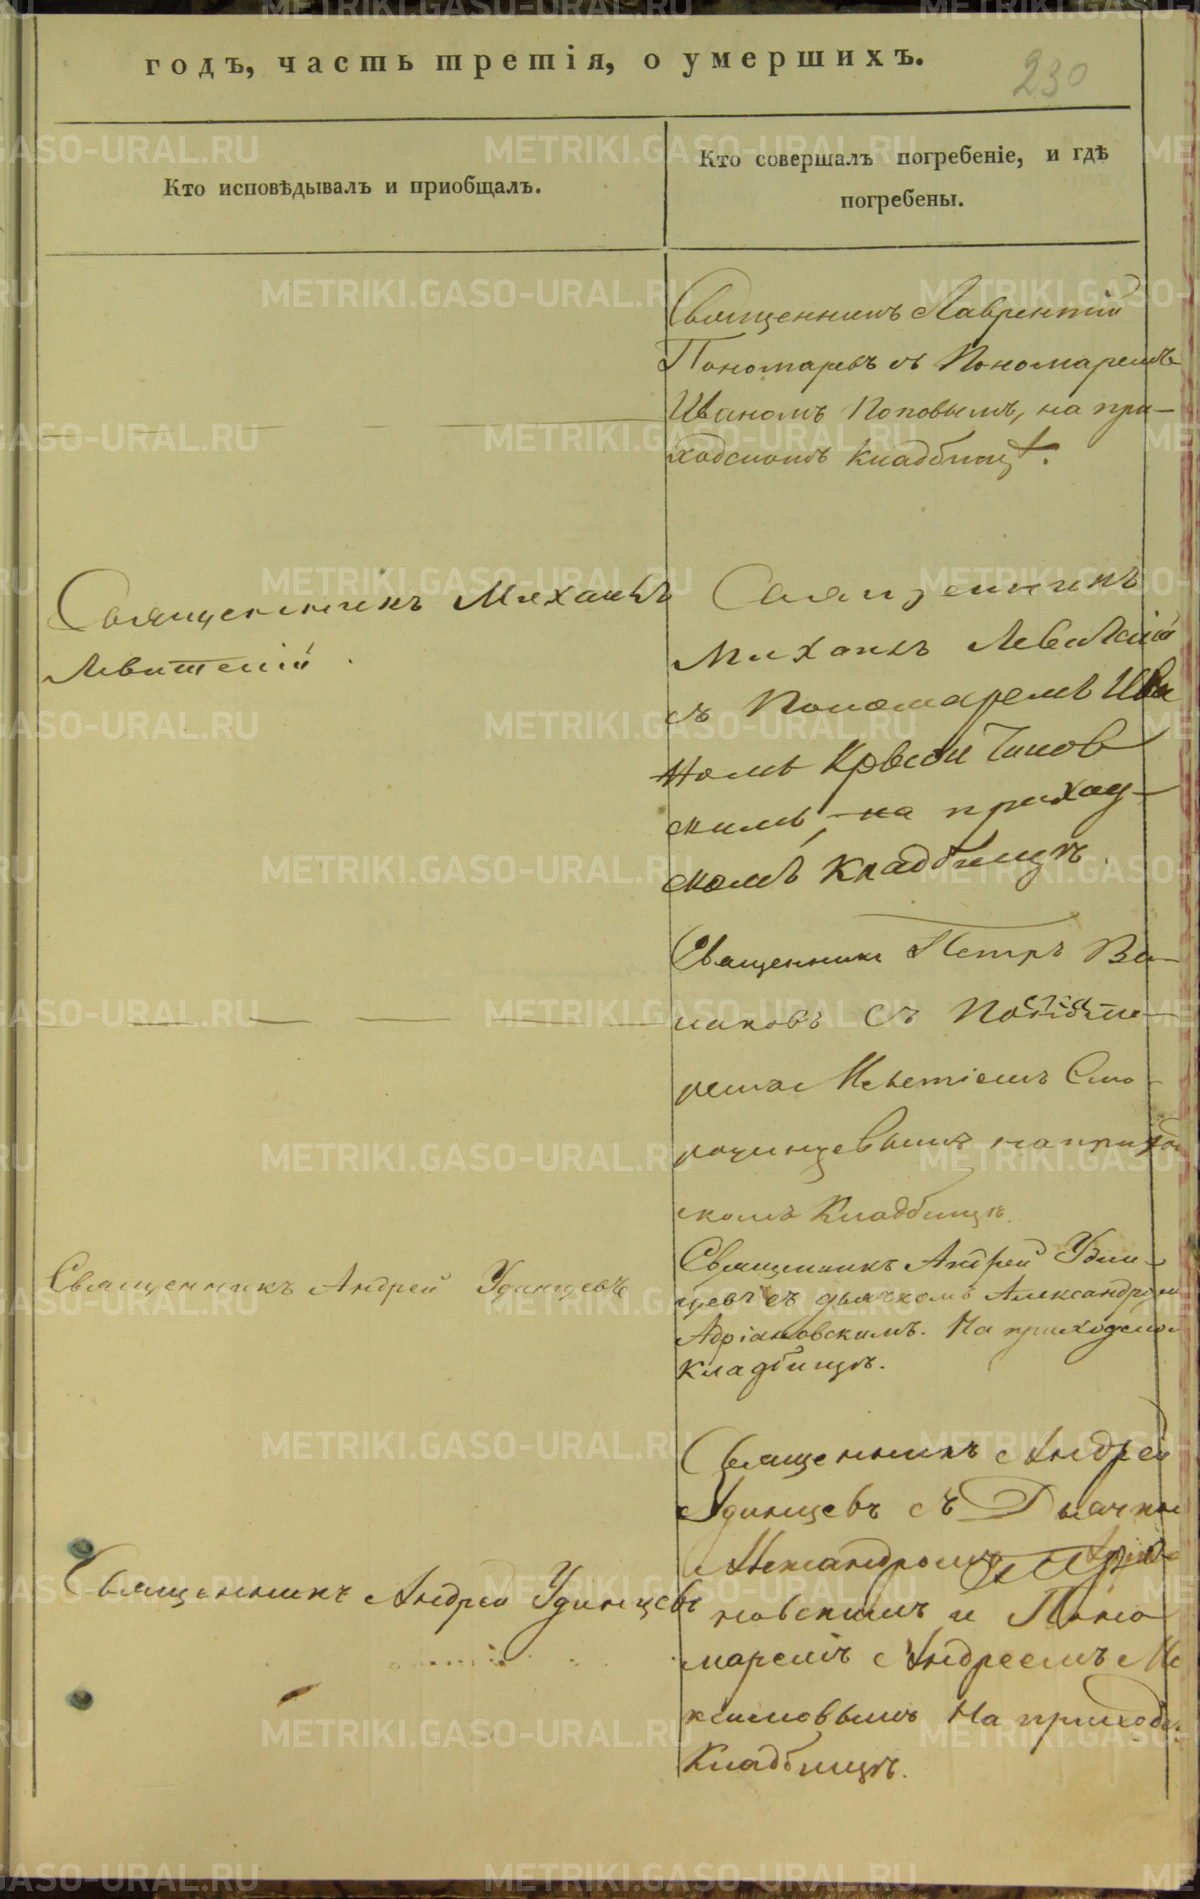 годъ, часть третія, о умершихъ.
230
Кто исповѣдывалъ и приобщалъ.
Кто совершалъ погребеніе, и гдѣ
погребены.
Священникъ Лаврентій
Пономаревъ съ Пономаремъ
Иваномъ Поповымъ, на при-
ходскомъ кладбищѣ.
Священникъ Михаилъ
Левитскій
Священникъ
Михаилъ Левитскій
съ Пономаремъ Ива
номъ
скимъ, на приход-
скомъ кладбищѣ.
Священникъ Петръ
съ
на приход
скомъ Кладбищѣ.
Священникъ Андрей Удинцевъ
Священникъ Андрей Удин-
цевъ съ дьячкомъ Александром
Адріановскимъ. На приходском
кладбищѣ.
Священникъ Андрей Удинцевъ
Священникъ Андрей
Удинцевъ съ Дьячком
Александромъ
новскимъ и Поно
маремъ Андреемъ Ма
ксимовымъ На приходс.
Кладбищѣ.
METRIKI.GASO-URAL.RU